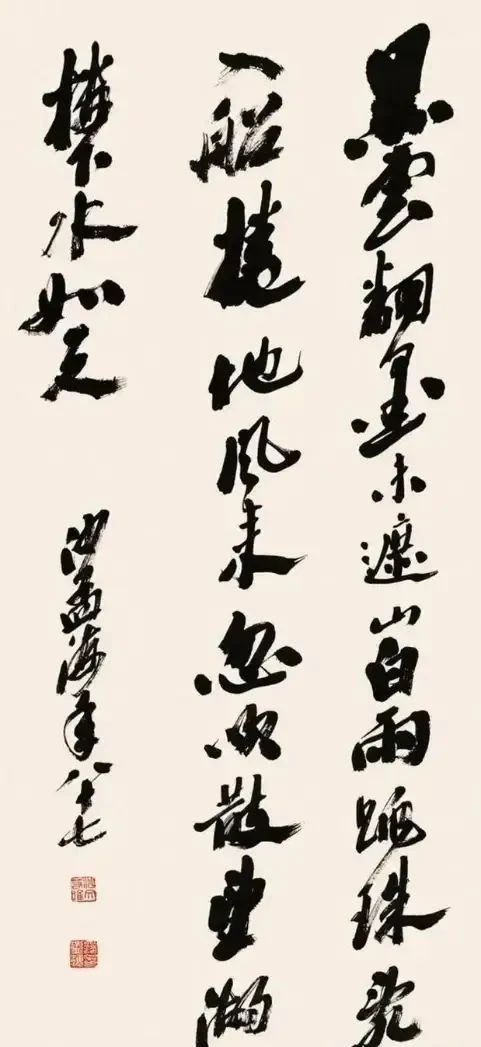 黑雲翻墨未遮山白雨跳珠亂
入船捲地風来忽吹散望湖
樓下水如天
沙孟海年八十七